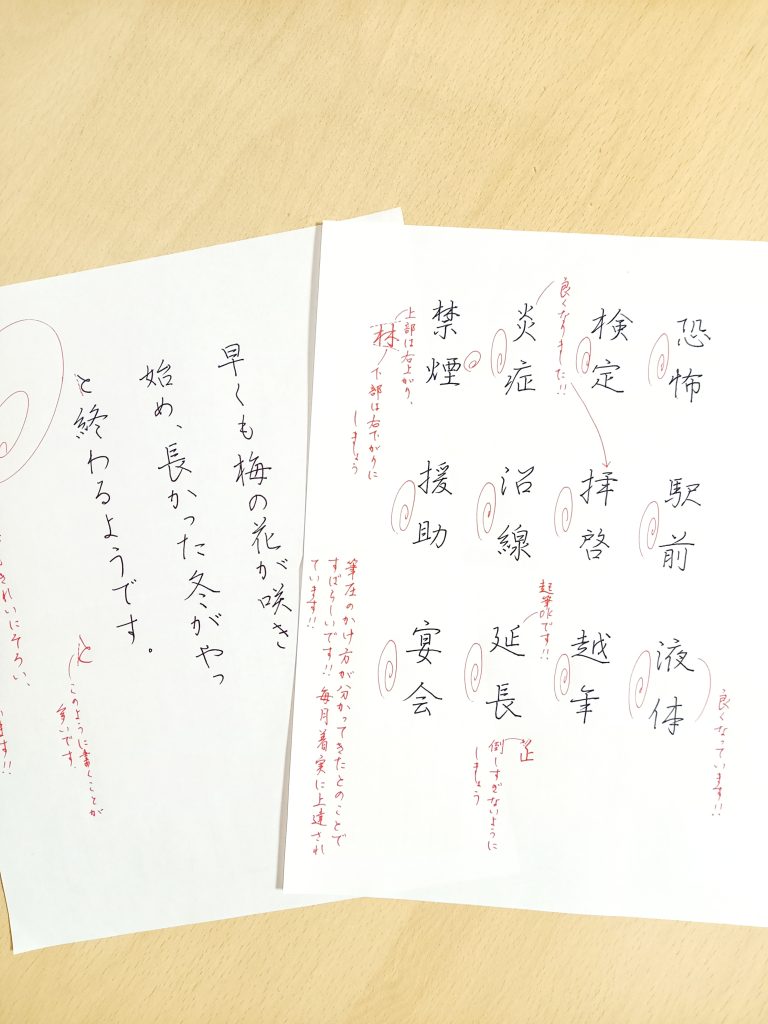 恐怖
検定
炎症
禁煙
駅前
拝啓
沿線
援助
液体
越年
延長
宴会
良くなりました!!
上部は右上がり、
下部は右下がりに
しましょう
林
起筆okです!!
良くなっています!!
正
倒しすぎないように
しましょう
筆圧のかけ方が分かってきたとのことで
すばらしいです!! 毎月着実に上達され
ています!!
早くも梅の花が咲き
始め、長かった冬がやっ
と終わるようです。
と
このように書くことが
多いです。
もきれいにそろい、
ます!!